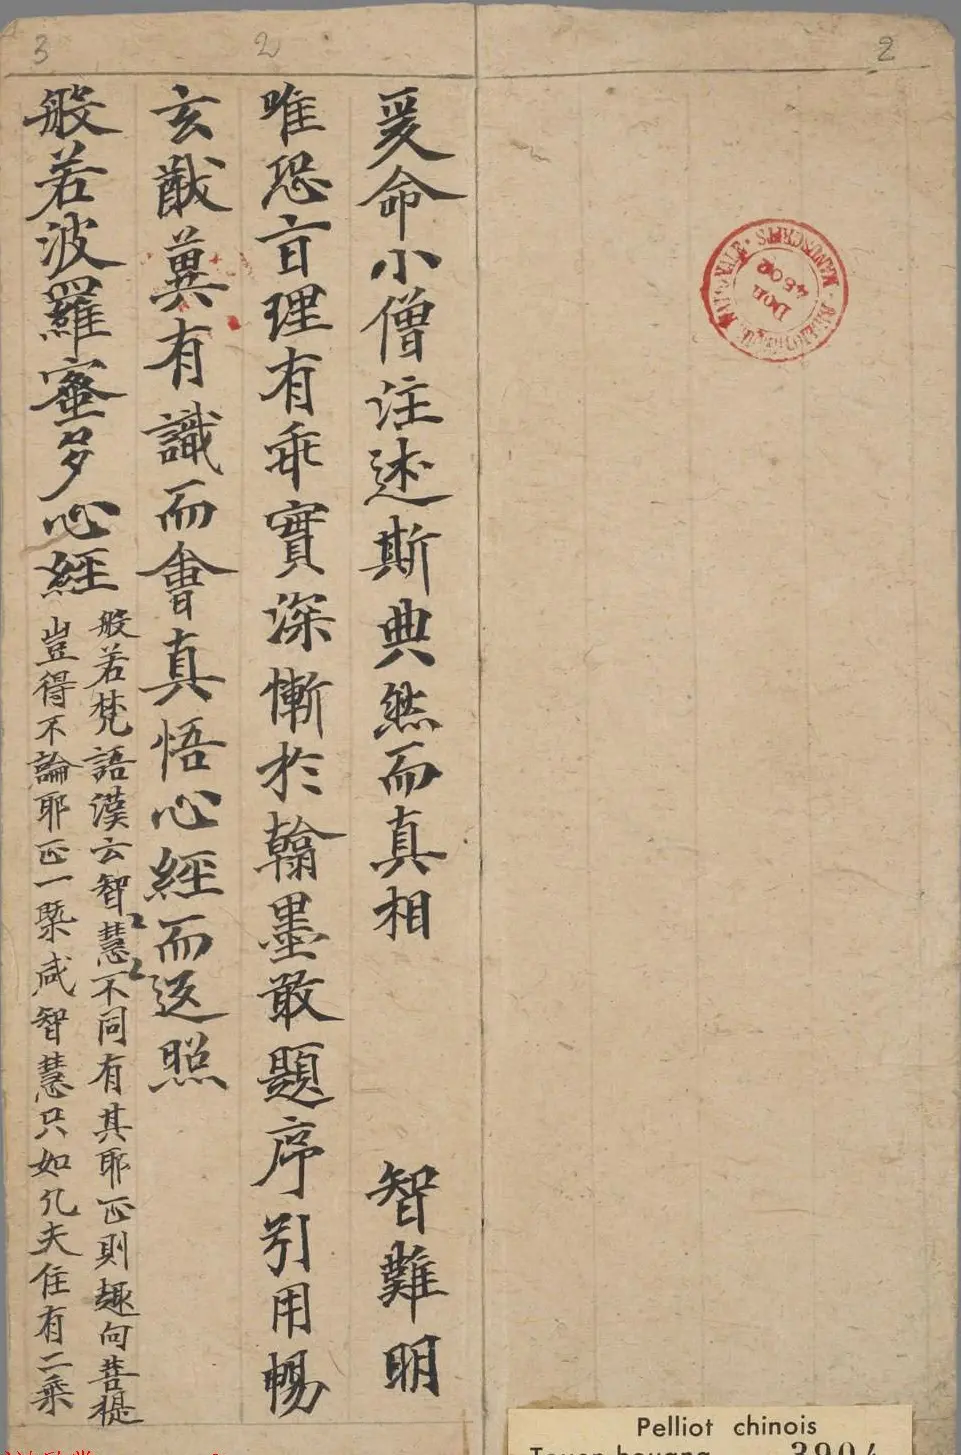 爰命小僧注述斯典然而真相 智難明
唯恐盲理有乖實深慚於翰墨敢題序引用暢
玄猷冀有識而會真悟心經而返照
般若波羅蜜多心經
般若梵語漢云智慧〻不同有其耶正則趣向菩提
豈得不論耶正一槩咸智慧只如凡夫住有二乘
3
2
2
BIBLIOTHÈQUE NATIONALE · MANUSCRITS ·
Don
4502
Pelliot chinois
Touen-houang
3904